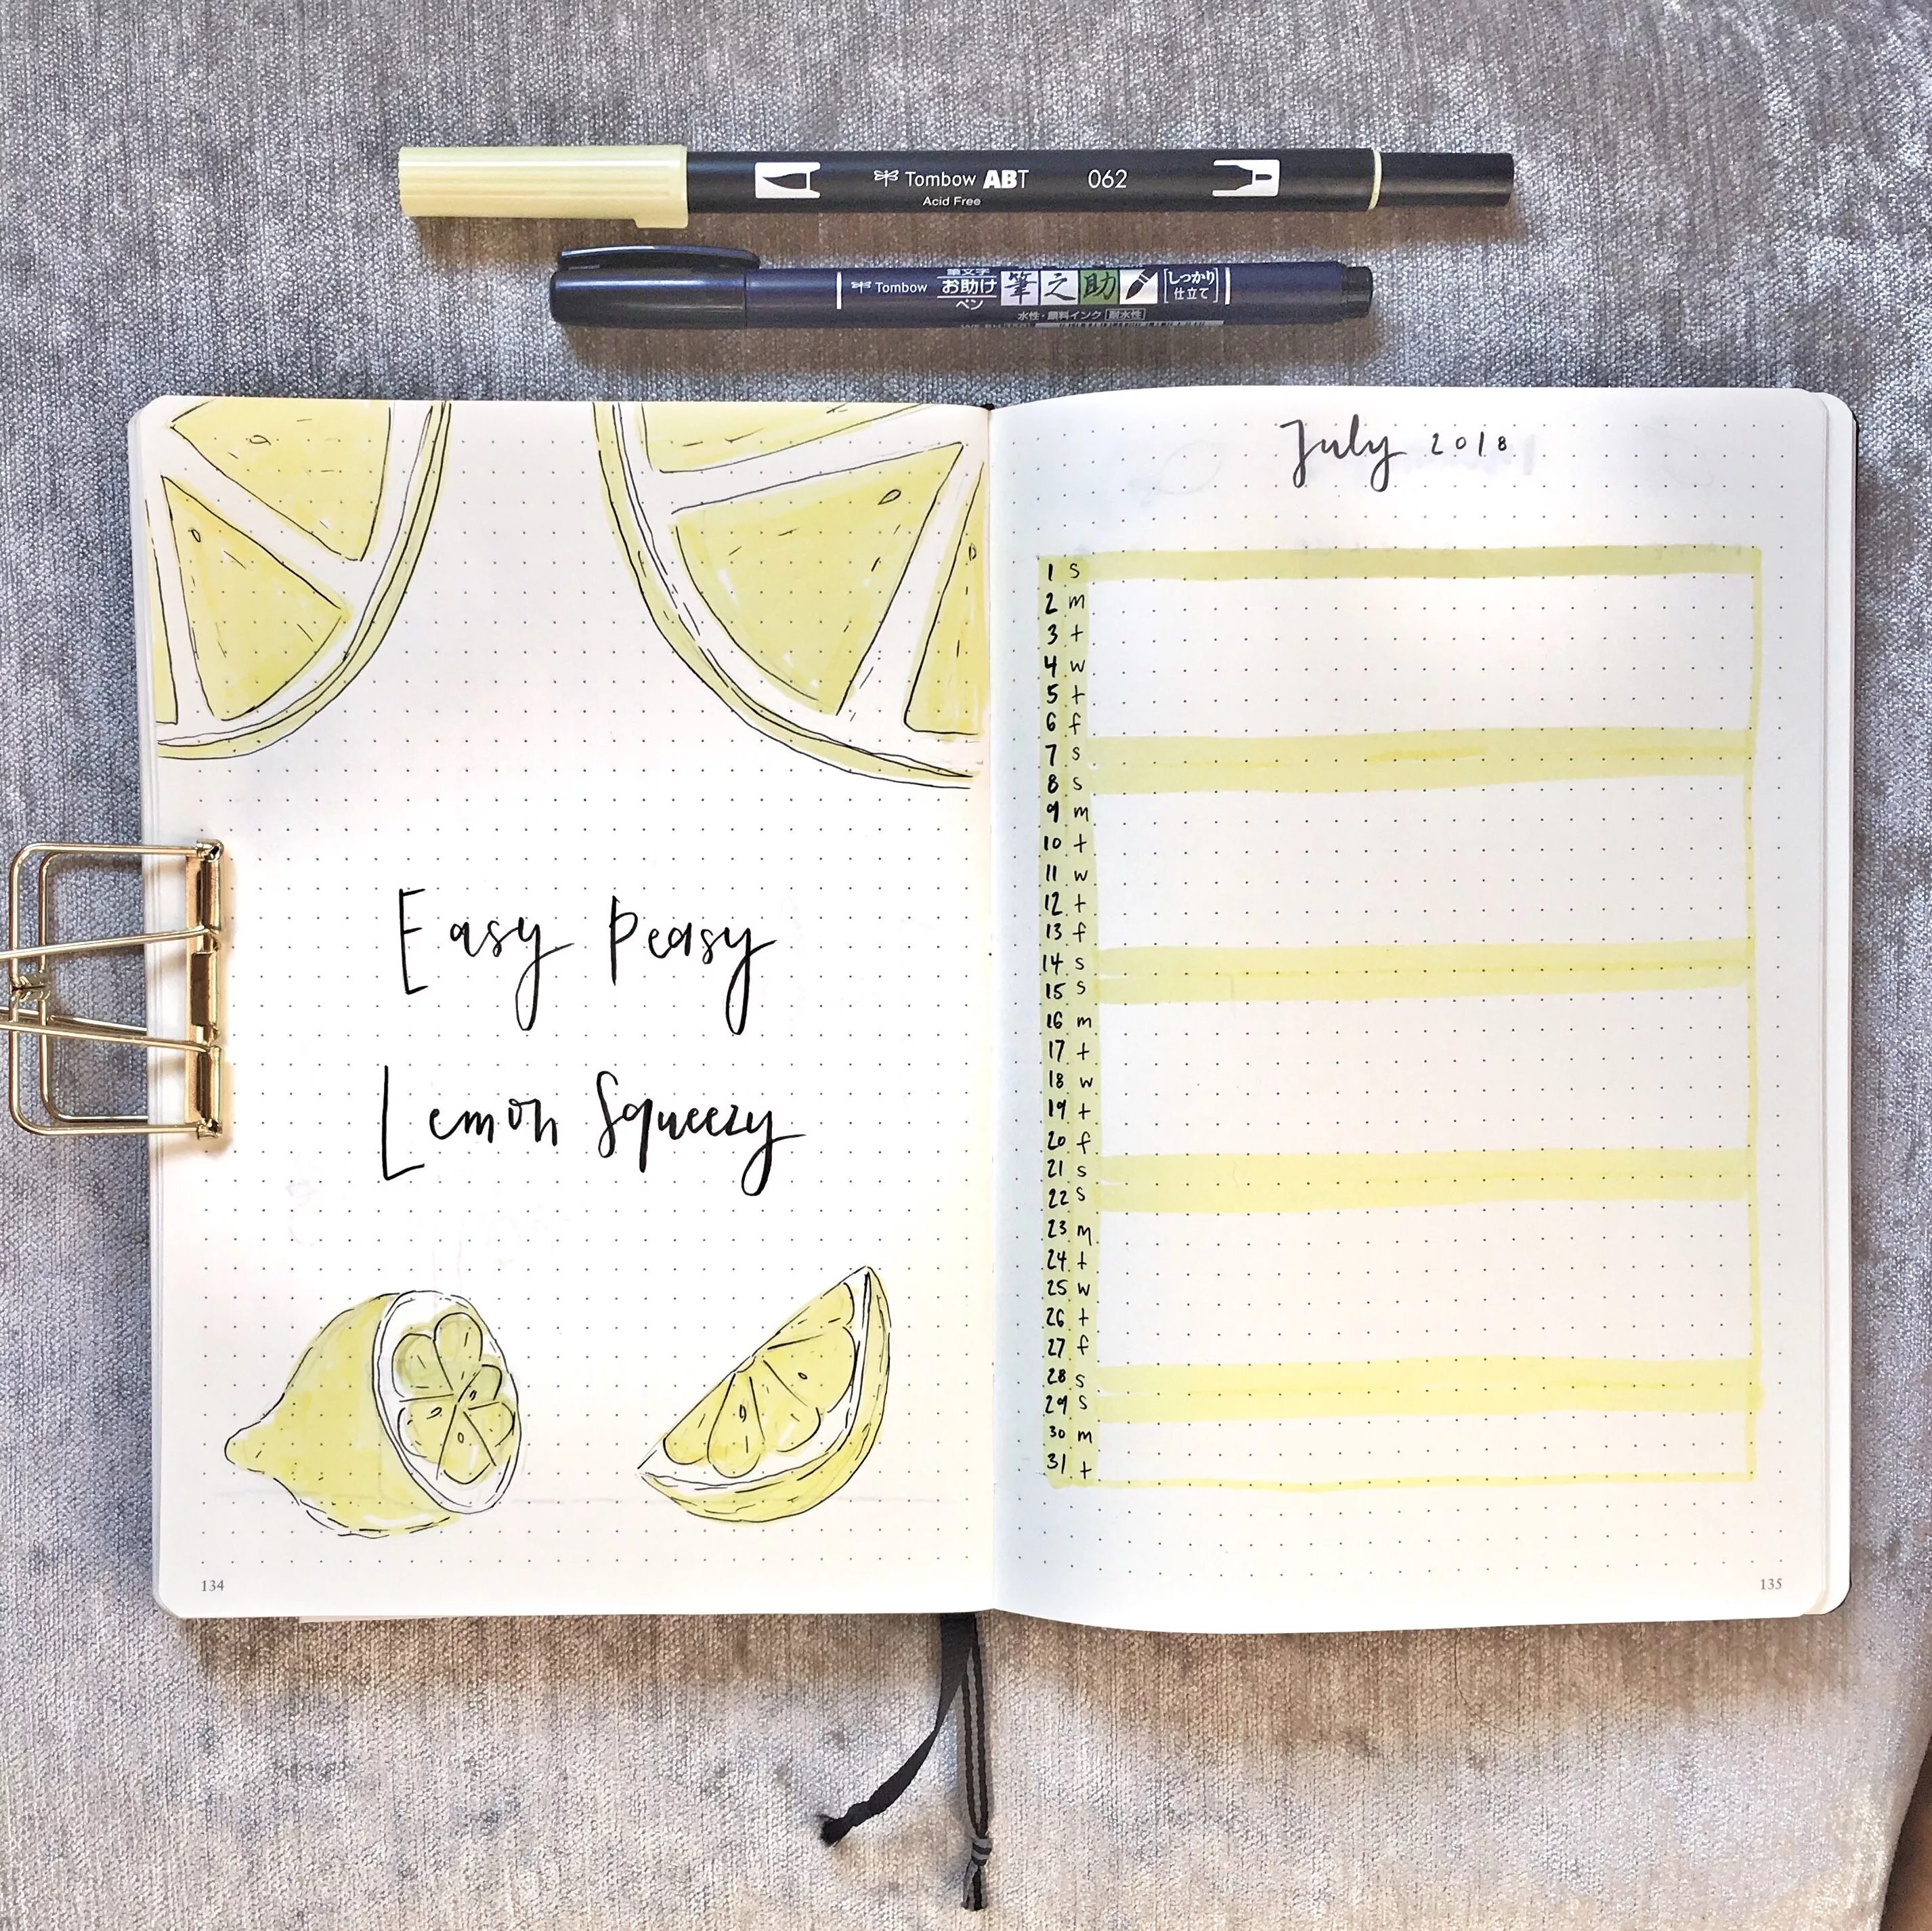 Tombow ABT 062
Acid Free
筆文字
Tombow お助け 筆之助 しっかり
ペン 仕立て
水性・顔料インク 耐水性
Easy Peasy
Lemon Squeezy
134
July 2018
1 s
2 m
3 t
4 w
5 t
6 f
7 s
8 s
9 m
10 t
11 w
12 t
13 f
14 s
15 s
16 m
17 t
18 w
19 t
20 f
21 s
22 s
23 m
24 t
25 w
26 t
27 f
28 s
29 s
30 m
31 t
135